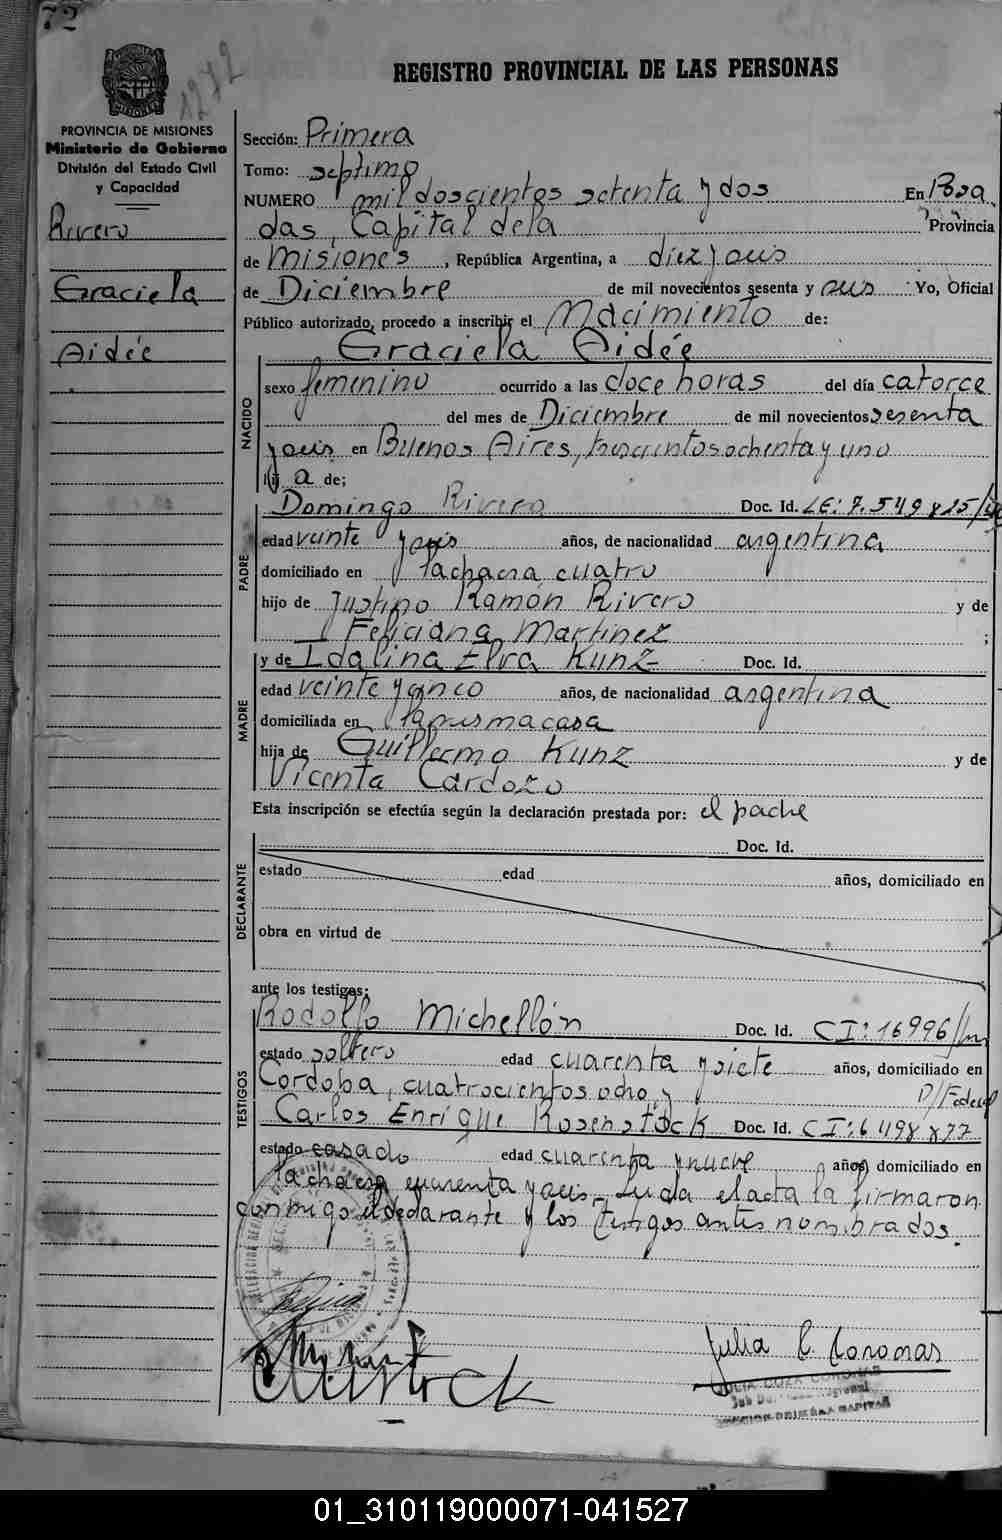 72
1272
REGISTRO PROVINCIAL DE LAS PERSONAS
MISIONES
PROVINCIA DE MISIONES
Ministerio de Gobierno
División del Estado Civil
y Capacidad
Rivero
Graciela
Aidée
Sección: Primera
Tomo: septimo
NUMERO mil doscientos setenta y dos En Posa
das, Capital de la Provincia
de Misiones, República Argentina, a diez y seis
de Diciembre de mil novecientos sesenta y seis Yo, Oficial
Público autorizado, procedo a inscribir el Nacimiento de:
Graciela Aidée
NACIDO
sexo femenino ocurrido a las doce horas del día catorce
del mes de Diciembre de mil novecientos sesenta
y seis en Buenos Aires, trescientos ochenta y uno
hij a de;
PADRE
Domingo Rivero Doc. Id. LE: 7.549.825/
edad veinte y seis años, de nacionalidad argentina
domiciliado en la chacra cuatro
hijo de Justino Ramón Rivero y de
Feliciana Martinez ;
MADRE
y de Idalina Elva Kunz Doc. Id.
edad veinte y cinco años, de nacionalidad argentina
domiciliada en la misma casa
hija de Guillermo Kunz y de
Vicenta Cardozo
Esta inscripción se efectúa según la declaración prestada por: el padre
DECLARANTE
Doc. Id.
estado edad años, domiciliado en
obra en virtud de
ante los testigos:
TESTIGOS
Rodolfo Michellón Doc. Id. CI: 16996/
estado soltero edad cuarenta y siete años, domiciliado en
Cordoba, cuatrocientos ocho, y P/Federal
Carlos Enrique Rosenstock Doc. Id. CI: 6498877
estado casado edad cuarenta y nueve años, domiciliado en
la chacra cuarenta y seis. Leida el acta la firmaron
conmigo el declarante y los testigos antes nombrados.
Julia C. Coronas
JULIA COZA CORONAS
SECCION PRIMERA CAPITAL
01_310119000071-041527